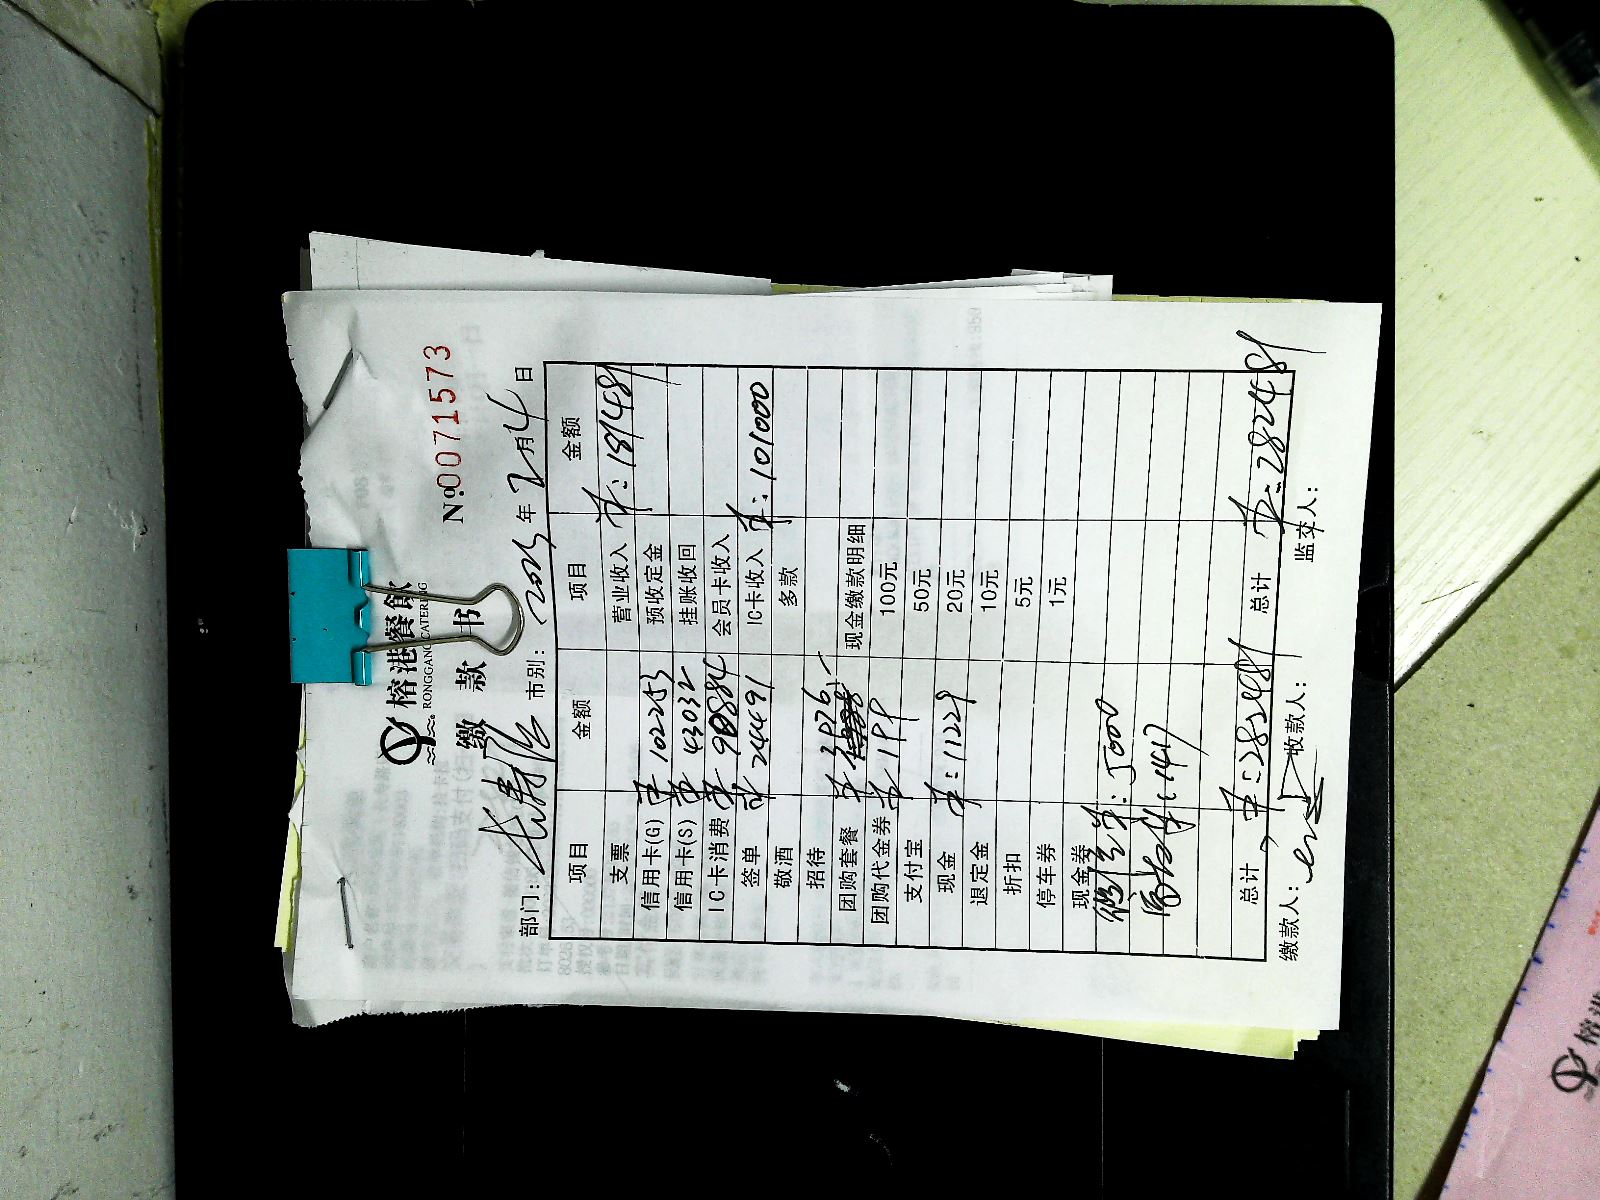 榕港餐飲
RONGGANG CATERING
缴 款 书
№0071573
部门： 市别： 2015年2月4日
项目 金额 项目 金额
支票 营业收入 181481
信用卡(G) 102253 预收定金
信用卡(S) 43032 挂账收回
IC卡消费 会员卡收入
签单 24491 IC卡收入 101000
敬酒 多款
招待
团购套餐 3076 现金缴款明细
团购代金券 199 100元
支付宝 50元
现金 11229 20元
退定金 10元
折扣 5元
停车券 1元
现金券
5000
1417
总计 282481 总计 282481
缴款人： 收款人： 监交人：